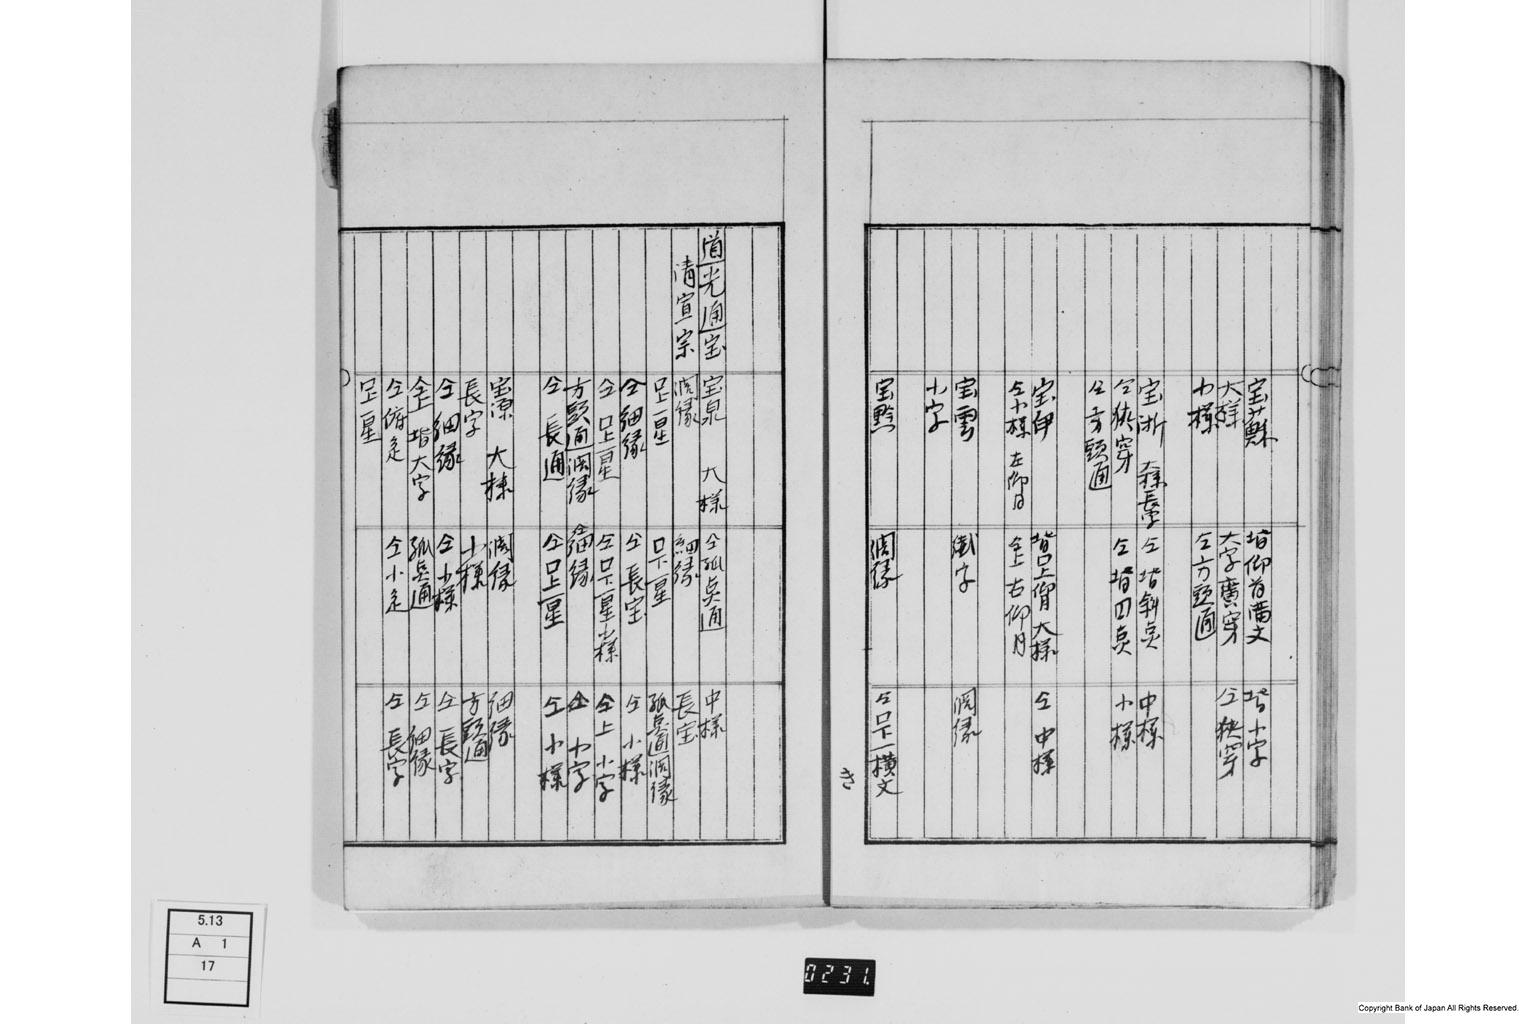 宝蘇
大様
小様
宝浙
仝狭穿
仝方頭通
宝伊
仝小様 左仰月
宝雲
小字
宝黔
大字廣穿
仝方頭通
仝背斜点
仝背四点
仝上右仰月
濶縁
背小字
仝狭穿
中様
小様
仝中様
濶縁
仝口下一横文
き
道光通宝
清宣宗
宝泉 大様
濶縁
口上一星
仝細縁
仝口上一星
方頭通濶縁
仝長通
宝源 大様
長字
仝細縁
仝上背大字
口上一星
仝孤点通
細縁
口下一星
仝長宝
仝口下一星小様
仝細縁
仝口上一星
濶縁
小様
仝小様
孤点通
中様
長宝
孤点通濶縁
仝小様
仝上小字
仝小字
仝小様
細縁
方頭通
仝長字
仝細縁
仝長字
5.13
A 1
17
0231.
Copyright Bank of Japan All Rights Reserved.